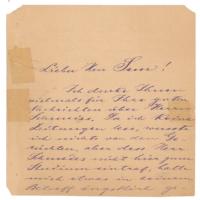 Lieber Herr Simon!
Ich danke Ihnen
vielmals für Ihre guten
Nachrichten über Herrn
Da ich keine
Zeitungen lese, wusste
ich nichts von den Ge-
rüchten, aber dass Herr
nicht hier zum
Studium eintraf, hatte
mich etwas in